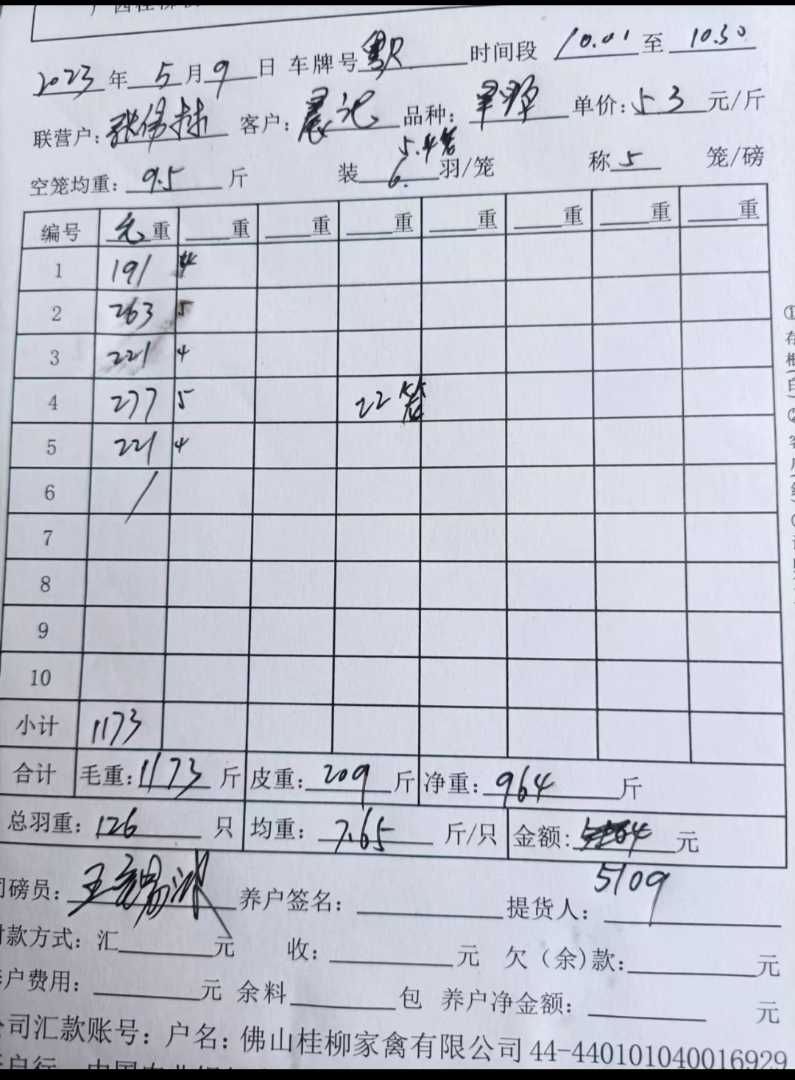 2023年5月9日 车牌号 粤R 时间段 10.01至10.30
联营户: 客户:晨记 品种: 单价:53元/斤
5.4笼
空笼均重:9.5斤 装6.羽/笼 称5笼/磅
编号 毛重 重 重 重 重 重 重 重
1 191 4
2 263 5
3 221 4
4 277 5 22笼
5 221 4
6 /
7
8
9
10
小计 1173
合计 毛重:1173斤 皮重:209斤 净重:964斤
总羽重:126只 均重:7.65斤/只 金额:元
5109
司磅员: 养户签名: 提货人:
付款方式:汇 元 收: 元 欠(余)款: 元
户费用: 元 余料 包 养户净金额: 元
司汇款账号:户名:佛山桂柳家禽有限公司 44-440101040016929